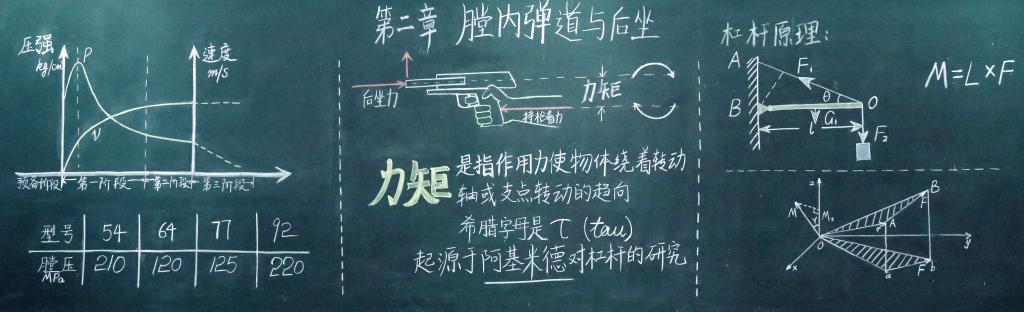 第二章 膛内弹道与后坐
压强
kg/cm
P
速度
m/s
V
预备阶段 第一阶段 第二阶段 第三阶段
型号 54 64 77 92
膛压 MPa 210 120 125 220
后坐力
持枪着力
力矩
力矩 是指作用力使物体绕着转动
轴或支点转动的趋向
希腊字母是 τ (tau)
起源于阿基米德对杠杆的研究
杠杆原理:
A
F₁
B
θ
O
G₁
l
F₂
M=L×F
z
M
Mz
B
F
A
O
y
x
a
F
b